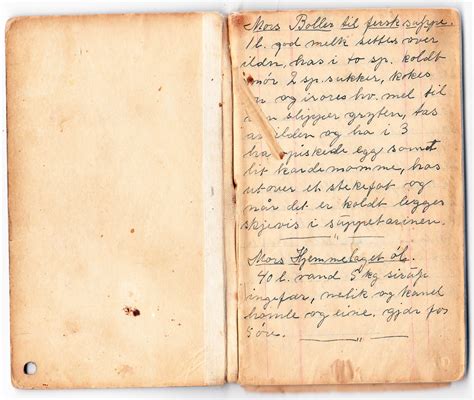 Mors Boller til fersk suppe.
1 l. god melk settes over
ilden, has i to sp. koldt
smør 2 sp. sukker, kokes
og irøres hv. mel til
slipper gryten, tas
ilden og ha i 3
bra opiskede egg samt
lit kardemomme, has
utover et stekefat og
når det er koldt legges
skjevis i suppeterinen.
Mors Hjemmelaget øl.
40 l. vand 5 kg sirup
ingefær, nelik og kanel
homle og eine. gjær for
5 øre.